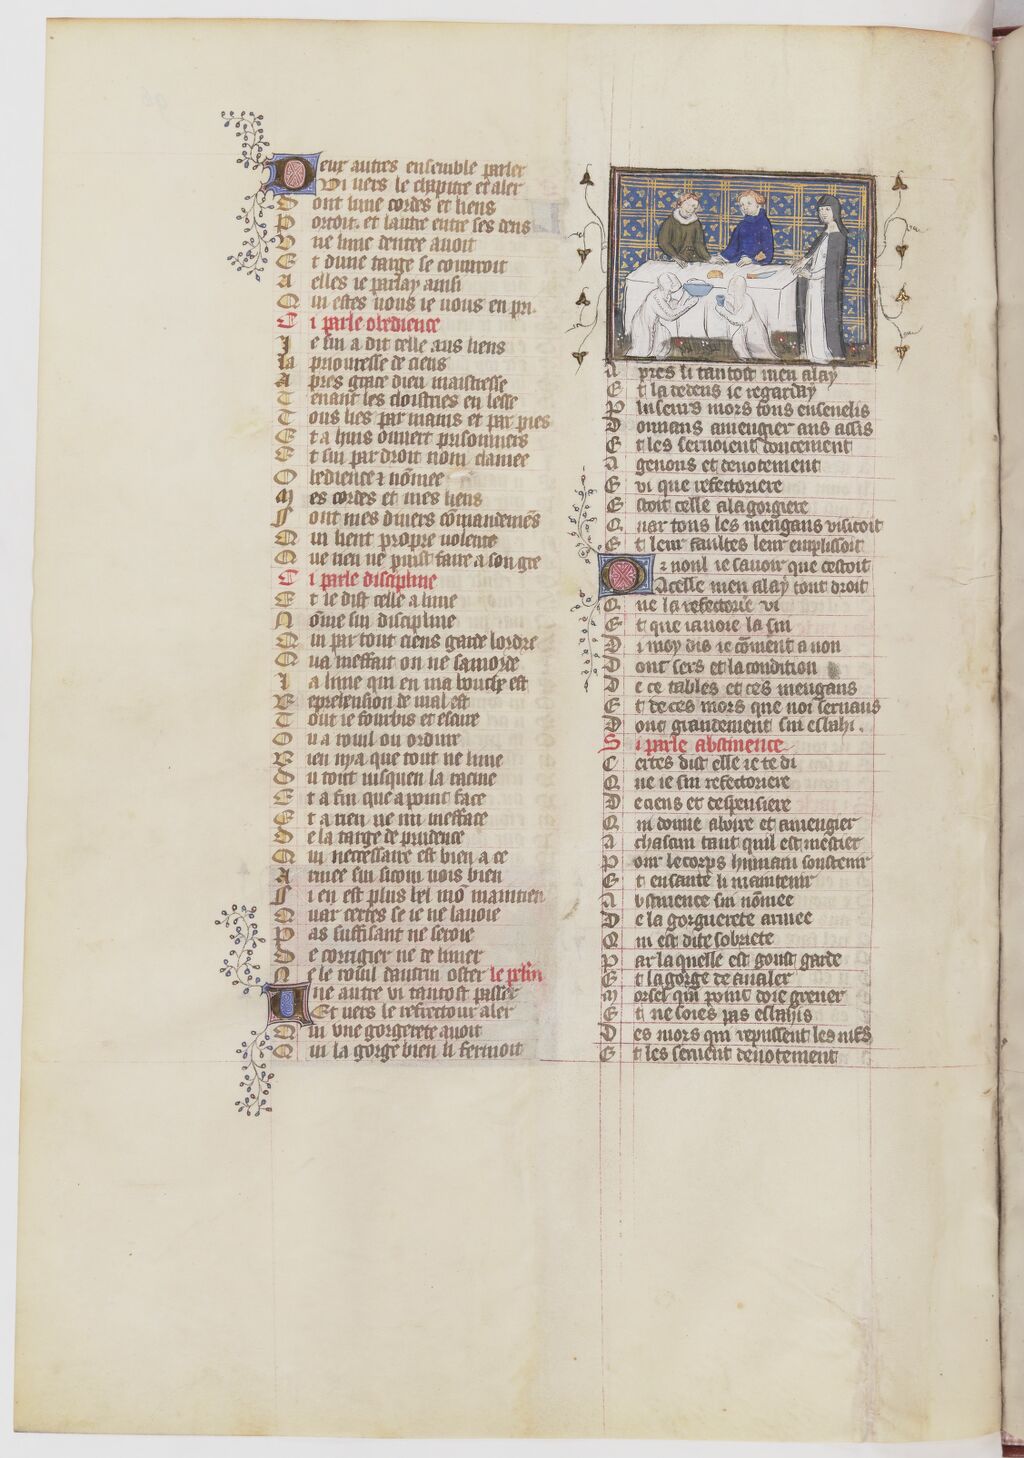 Deux autres ensemble parler
Vi vers le chapitre et aler
Dont lune cordes et liens
Portoit. et lautre entre ses dens
Vne lime dentee auoit
Et dune targe se couuroit
A elles ie parlay ainsi
Qui estes vous ie vous en pri.
Ci parle obedience
Je sui a dit celle aus liens
La prieuresse de ciens
Apres grace dieu maistresse
Tenant les cloistriers en lesse
Tous lies par mains et par pies
Et a huis ouuert prisonniers
Et sui par droit nom clamee
Obedience ⁊ nõmee
Mes cordes et mes liens
Sont mes diuers cõmandemẽs
Qui lient propre volente
Que rien ne puist faire a son gre
Ci parle discipline
Et ie dist celle a lime
Nõme sui discipline
Qui par tout ciens garde lordre
Qua meffait on ne samorde
La lime qui en ma bouche est
Reprehension de mal est
Tout ie fourbis et escure
Ou a rouil ou ordure
Rien ny a que tout ne lime
Du tout iusquen la racine
Et a fin que a point face
Et a rien ne mi mefface
De la targe de prudence
Qui necessaire est bien a ce
Armee sui sicom vois bien
Sien est plus bel mõ maintien
Quar certes se ie ne lauoie
Pas suffisant ne seroie
De corrigier ne de limer
Ne le rouil dautrui oster le pelerin
Vne autre vi tantost passer
Et vers le refrectour aler
Qui vne gorgerete auoit
Qui la gorge bien li fermoit
Apres li tantost men alay
Et la dedens ie regarday
Pluseurs mors tous enseuelis
Donnans amengier aus assis
Et les seruoient doucement
Agenous et deuotement
Et vi que refectoriere
Estoit celle alagorgiere
Quar tous les mengans visitoit
Et leur faultes leur emplissoit
Or uoul ie sauoir que cestoit
Acelle men alay tout droit
Que la refectorie vi
Et que iauoie la sui
Di moy dis ie cõment a non
Dont sers et la condition
De ce tables et ces mengans
Et de ces mors que uoi seruans
Dont grandement sui eslahi.
Si parle abstinence
Certes dist elle ie te di
Que ie sui refectoriere
De ciens et despensiere
Qui donne aboire et amengier
A chascun tant quil est mestier
Pour le corps humain soustenir
Et en sante li maintenir
Abstinence sui nõmee
De la gorguerete armee
Qui est dite sobriete
Par la quelle est goust garde
Et la gorge de aualer
Morsel qui point doie greuer
Et ne soies pas eslahis
Des mors qui repaissent les uifs
Et les seruent deuotement